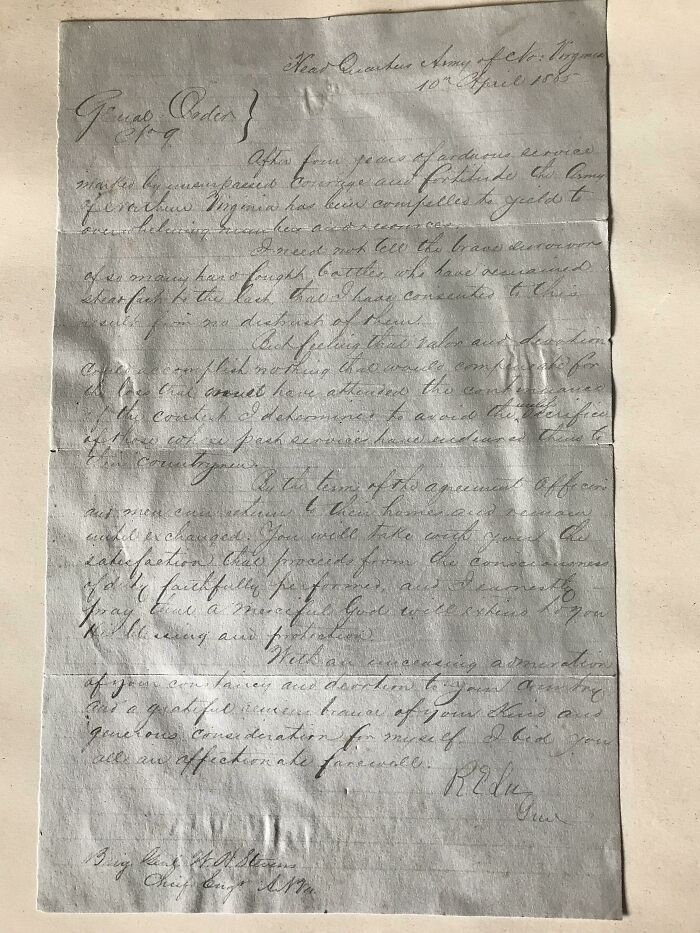 Head Quarters Army of No: Virginia
10th April 1865
General Order
No 9
After four years of arduous service
marked by unsurpassed courage and fortitude the Army
of Northern Virginia has been compelled to yield to
overwhelming numbers and resources.
I need not tell the brave survivors
of so many hard fought battles who have remained
steadfast to the last that I have consented to this
result from no distrust of them.
But feeling that valor and devotion
could accomplish nothing that would compensate for
the loss that must have attended the continuance
of the contest I determined to avoid the useless sacrifice
of those whose past services have endeared them to
their countrymen.
By the terms of the agreement Officers
and men can return to their homes and remain
until exchanged. You will take with you the
satisfaction that proceeds from the consciousness
of duty faithfully performed, and I earnestly
pray that a Merciful God will extend to you
His blessing and protection
With an unceasing admiration
of your constancy and devotion to your Country
and a grateful remembrance of your kind and
generous consideration for myself I bid you
all an affectionate farewell.
R E Lee
Genl
Brig Genl W. H. Stevens
Chief Engr A N Va